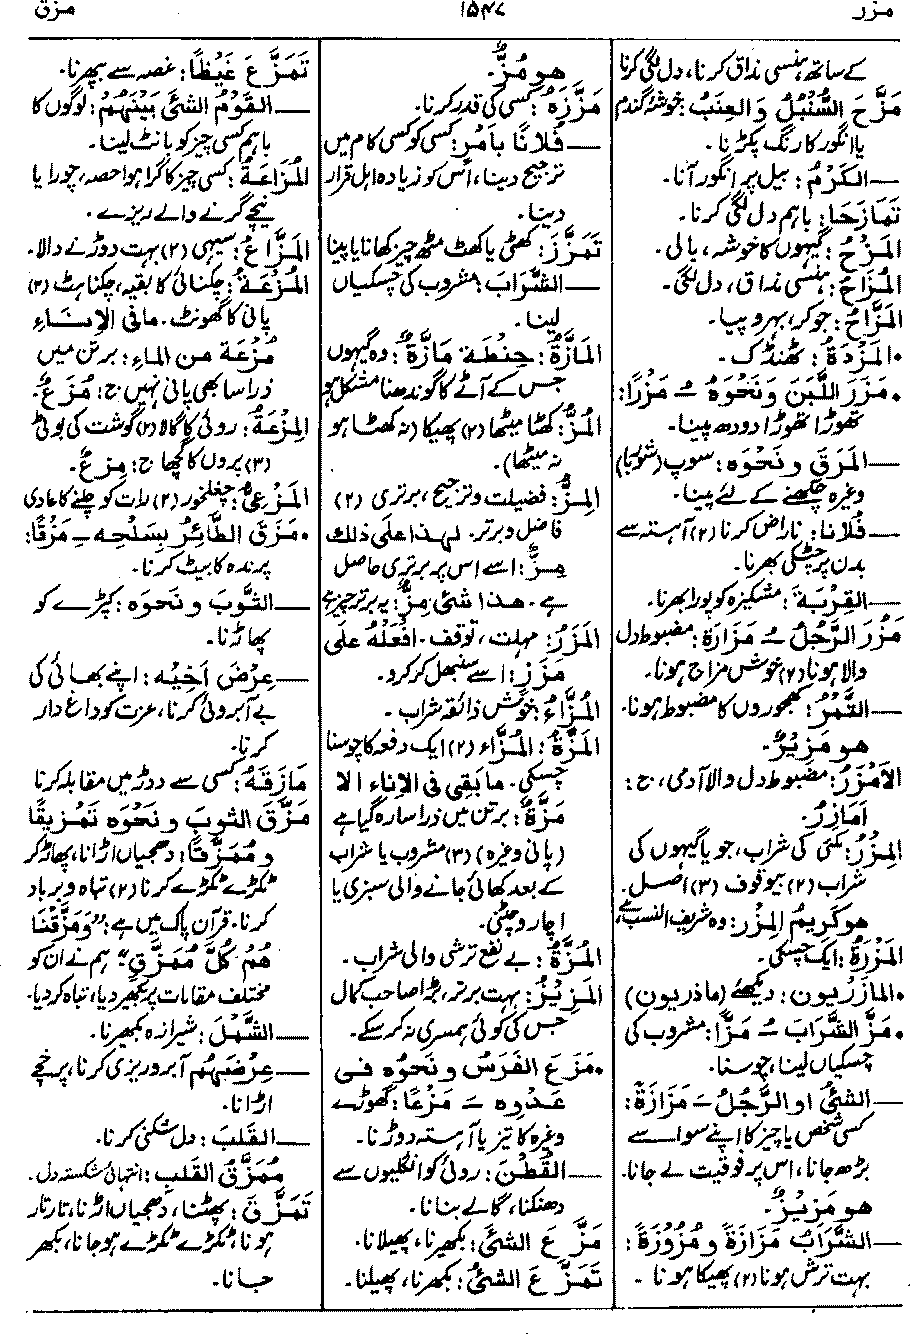 مزر
۱۵۴۷
مزق
کے ساتھ، ہنسی مذاق کرنا، دل لگی کرنا
مَزَّحَ السُّنْبُلُ وَالعِنَبُ: خوشۂ گندم
یا انگور کا رنگ پکڑنا۔
—الکَرْمُ: بیل پر انگور آنا۔
تَمَازَحَا: باہم دل لگی کرنا۔
المَزْحُ: گیہوں کا خوشہ، بالی۔
المُزَاحُ: ہنسی مذاق، دل لگی۔
المَزَّاحُ: جوکر، بہروپیا۔
•المَزْدَةُ: ٹھنڈک۔
•مَزَرَ اللَّبَنَ وَنَحْوَهُ ـُ مَزْرًا:
تھوڑا تھوڑا دودھ پینا۔
—المَرَقَ ونَحْوَہ: سوپ (شوربا)
وغیرہ چکھنے کے لئے پینا۔
—فُلَانًا: ناراض کرنا (۲) آہستہ سے
بدن پر چٹکی بھرنا۔
—القِرْبَةَ: مشکیزہ کو پورا بھرنا۔
مَزُرَ الرَّجُلُ ـُ مَزَارَةً: مضبوط دل
والا ہونا (۲) خوش مزاج ہونا۔
—التَّمْرُ: کھجوروں کا مضبوط ہونا۔
ھو مَزِیْرٌ۔
الاَمْزَرُ: مضبوط دل والا آدمی، ج:
اَمَازِرُ۔
المِزْرُ: مکئی کی شراب، جو یا گیہوں کی
شراب (۲) بیوقوف (۳) اصل۔
ھو کَرِیمُ المِزْر: وہ شریف النسب ہے
المَزْرَةُ: ایک چسکی۔
•المازَرْیون: دیکھئے (ماذریون)
•مَزَّ الشَّرَابَ ـُ مَزًّا: مشروب کی
چسکیاں لینا، چوسنا۔
—الشئُ او الرَّجُلُ ـَ مَزَازَةً:
کسی شخص یا چیز کا اپنے سوا سے
بڑھ جانا، اس پر فوقیت لے جانا۔
ھو مَزِیْزٌ۔
—الشَّرَابُ مَزَازَةً و مُزُوْزَةً:
بہت ترش ہونا (۲) پھیکا ہونا۔
ھو مُزٌّ۔
مَزَّزَہُ: کسی کی قدر کرنا۔
—فُلَانًا بِاَمْرٍ: کسی کو کسی کام میں
ترجیح دینا، اُس کو زیادہ اہل قرار
دینا۔
تَمَزَّزَ: کھٹی یا کھٹ مٹھ چیز کھانا یا پینا
—الشَّرَابَ: مشروب کی چسکیاں
لینا۔
المَازَّةُ: حِنطَة مَازَّةٌ: وہ گیہوں
جس کے آٹے کا گوندھنا مشکل ہو
المُزُّ: کھٹا میٹھا (۲) پھیکا (نہ کھٹا ہو
نہ میٹھا)۔
المِزُّ: فضیلت و ترجیح، برتری (۲)
فاضل و برتر۔ لہذا علٰی ذلك
مِزٌّ: اسے اس پر برتری حاصل
ہے۔ ھذا شیٔ مِزٌّ: یہ برتر چیز ہے
المَزَزُ: مہلت، توقف۔ افْعَلْهُ عَلَی
مَزَزٍ: اسے سنبھل کر کرو۔
المُزَّاءُ: خوش ذائقہ شراب۔
المَزَّةُ: المُزَّاء (۲) ایک دفعہ کا چوسنا
چسکی۔ مابَقِیَ فی الاِناء الا
مَزَّةٌ: برتن میں ذرا سا رہ گیا ہے
(پانی وغیرہ) (۳) مشروب یا شراب
کے بعد کھائی جانے والی سبزی یا
اچار و چٹنی۔
المُزَّةُ: بے نفع ترشی والی شراب۔
المَزِیْزُ: بہت برتر، بڑا صاحب کمال
جس کی کوئی ہمسری نہ کر سکے۔
•مَزَعَ الفَرَسُ و نَحْوُہ فی
عَدْوِہ ـَ مَزْعًا: گھوڑے
وغیرہ کا تیز یا آہستہ دوڑنا۔
—القُطْنَ: روئی کو انگلیوں سے
دھنکنا، گالے بنانا۔
مَزَّعَ الشیَٔ: بکھیرنا، پھیلانا۔
تَمَزَّعَ الشیُٔ: بکھرنا، پھیلنا۔
تَمَزَّعَ غَیْظًا: غصہ سے بپھرنا۔
—القَوْمُ الشیَٔ بَیْنَهُمْ: لوگوں کا
باہم کسی چیز کو بانٹ لینا۔
المُزَاعَةُ: کسی چیز کا گرا ہوا حصہ، چورا یا
نیچے گرنے والے ریزے۔
المَزَّاعُ: سیہی (۲) بہت دوڑنے والا۔
المُزْعَةُ: چکنائی کا بقیہ، چکناہٹ (۲)
پانی کا گھونٹ۔ مافی الاِناءِ
مُزْعَة من الماء: برتن میں
ذرا سا بھی پانی نہیں ج: مُزَعٌ۔
المِزْعَةُ: روئی کا گالا (۲) گوشت کی بوٹی
(۳) پروں کا گچھا ج: مِزعٌ۔
المَزْعِیُّ: چغلخور (۲) رات کو چلنے کا عادی
•مَزَقَ الطَّائِرُ بِسَلْحِه ـِ مَزْقًا:
پرندہ کا بیٹ کرنا۔
—الثَّوْبَ و نَحْوَہ: کپڑے کو
پھاڑنا۔
—عِرْضَ اَخِیْه: اپنے بھائی کی
بے آبروئی کرنا، عزت کو داغ دار
کرنا۔
مَازَقَهُ: کسی سے دوڑ میں مقابلہ کرنا
مَزَّقَ الثوبَ و نَحْوَہ تَمْزِیقًا
و مُمَزَّقًا: دھجیاں اڑانا، پھاڑ کر
ٹکڑے ٹکڑے کرنا (۲) تباہ و برباد
کرنا۔ قرآن پاک میں ہے: "وَمَزَّقْنَا
ھُمْ کُلَّ مُمَزَّقٍ" ہم نے ان کو
مختلف مقامات پر بکھیر دیا، تباہ کر دیا۔
—الشَّمْلَ: شیرازہ بکھیرنا۔
—عِرْضَهُم آبروریزی کرنا، پرخچے
اڑانا۔
—القَلبَ: دل شکنی کرنا۔
مُمَزَّقُ القلبِ: انتہائی شکستہ دل۔
تَمَزَّقَ: پھٹنا، دھجیاں اڑنا، تار تار
ہونا، ٹکڑے ٹکڑے ہو جانا، بکھر
جانا۔